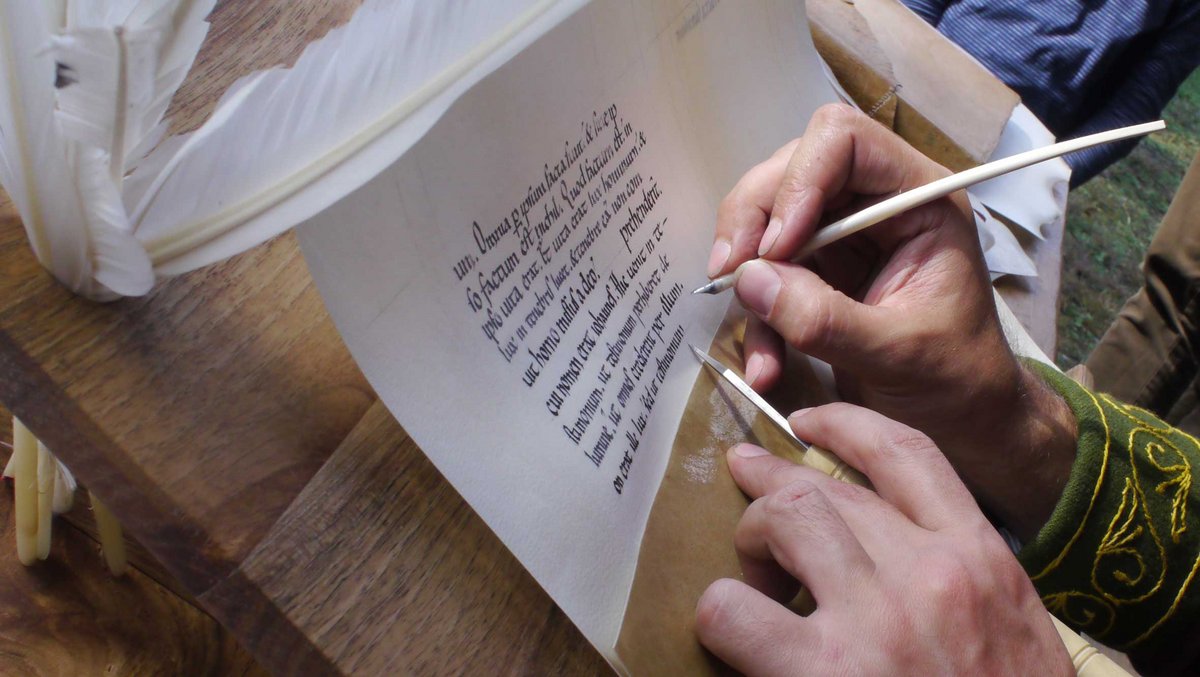 um. Omnia p ipſum facta ſunt. & ſine ip
ſo factum eſt nichil. Quod factum eſt in
ipſo uita erat. & uita erat lux hominum. &
lux in tenebriſ lucet. & tenebre eā non com
prehendert.
uit homo miſſuſ a deo.
cui nomen erat iohanneſ. hic uenit in te-
ſtimonium. ut teſtimonium perhiberet de
lumine. ut omneſ crederent per illum.
on erat ille lux. ſed ut teſtimonium